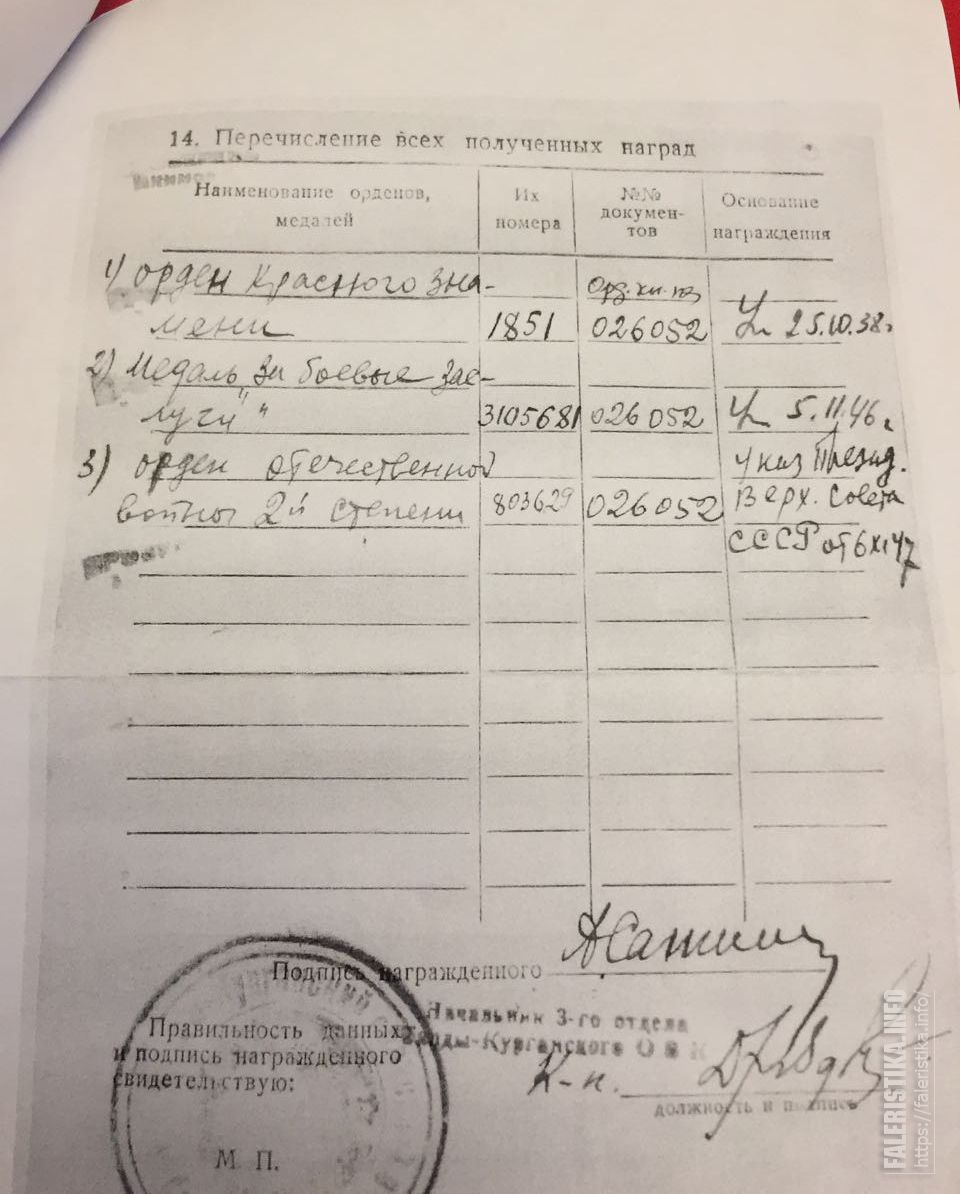 14. Перечисление всех полученных наград
Наименование орденов, медалей
Их номера
№№ докумен-тов
Основание награждения
1) орден Красного Зна-
Орд. кн. на
мени 1851 026052 Ук 25.10.38г
2) Медаль "За боевые Зас-
луги" 3105681 026052 Ук 5.11.46г
3) орден отечественной Указ Презид.
войны 2й степени 803629 026052 Верх. Совета
СССР от 6 XI 47
Подпись награжденного АСажин
Начальник 3-го отдела
Курганского ОВК
Правильность данных
и подпись награжденного
свидетельствую:
К-н.
должность и подпись
М. П.
FALERISTIKA.INFO
https://faleristika.info